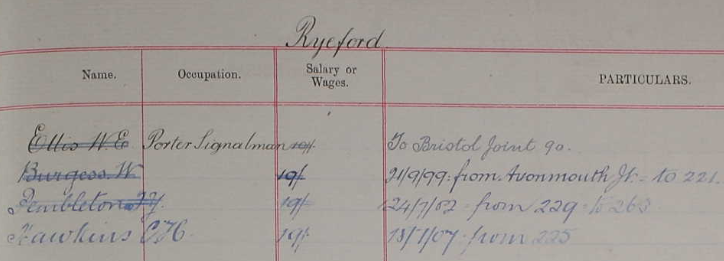 Ryeford
Name. Occupation. Salary or Wages. PARTICULARS.
Ellis W E Porter Signalman 19/- To Bristol Joint 90.
Burgess W 19/- 21/9/99 from Avonmouth Jt. - to 221
Pembleton 19/- 24/7/02 - from 229 - to 263
Hawkins C H. 19/- 18/1/07 - from 225